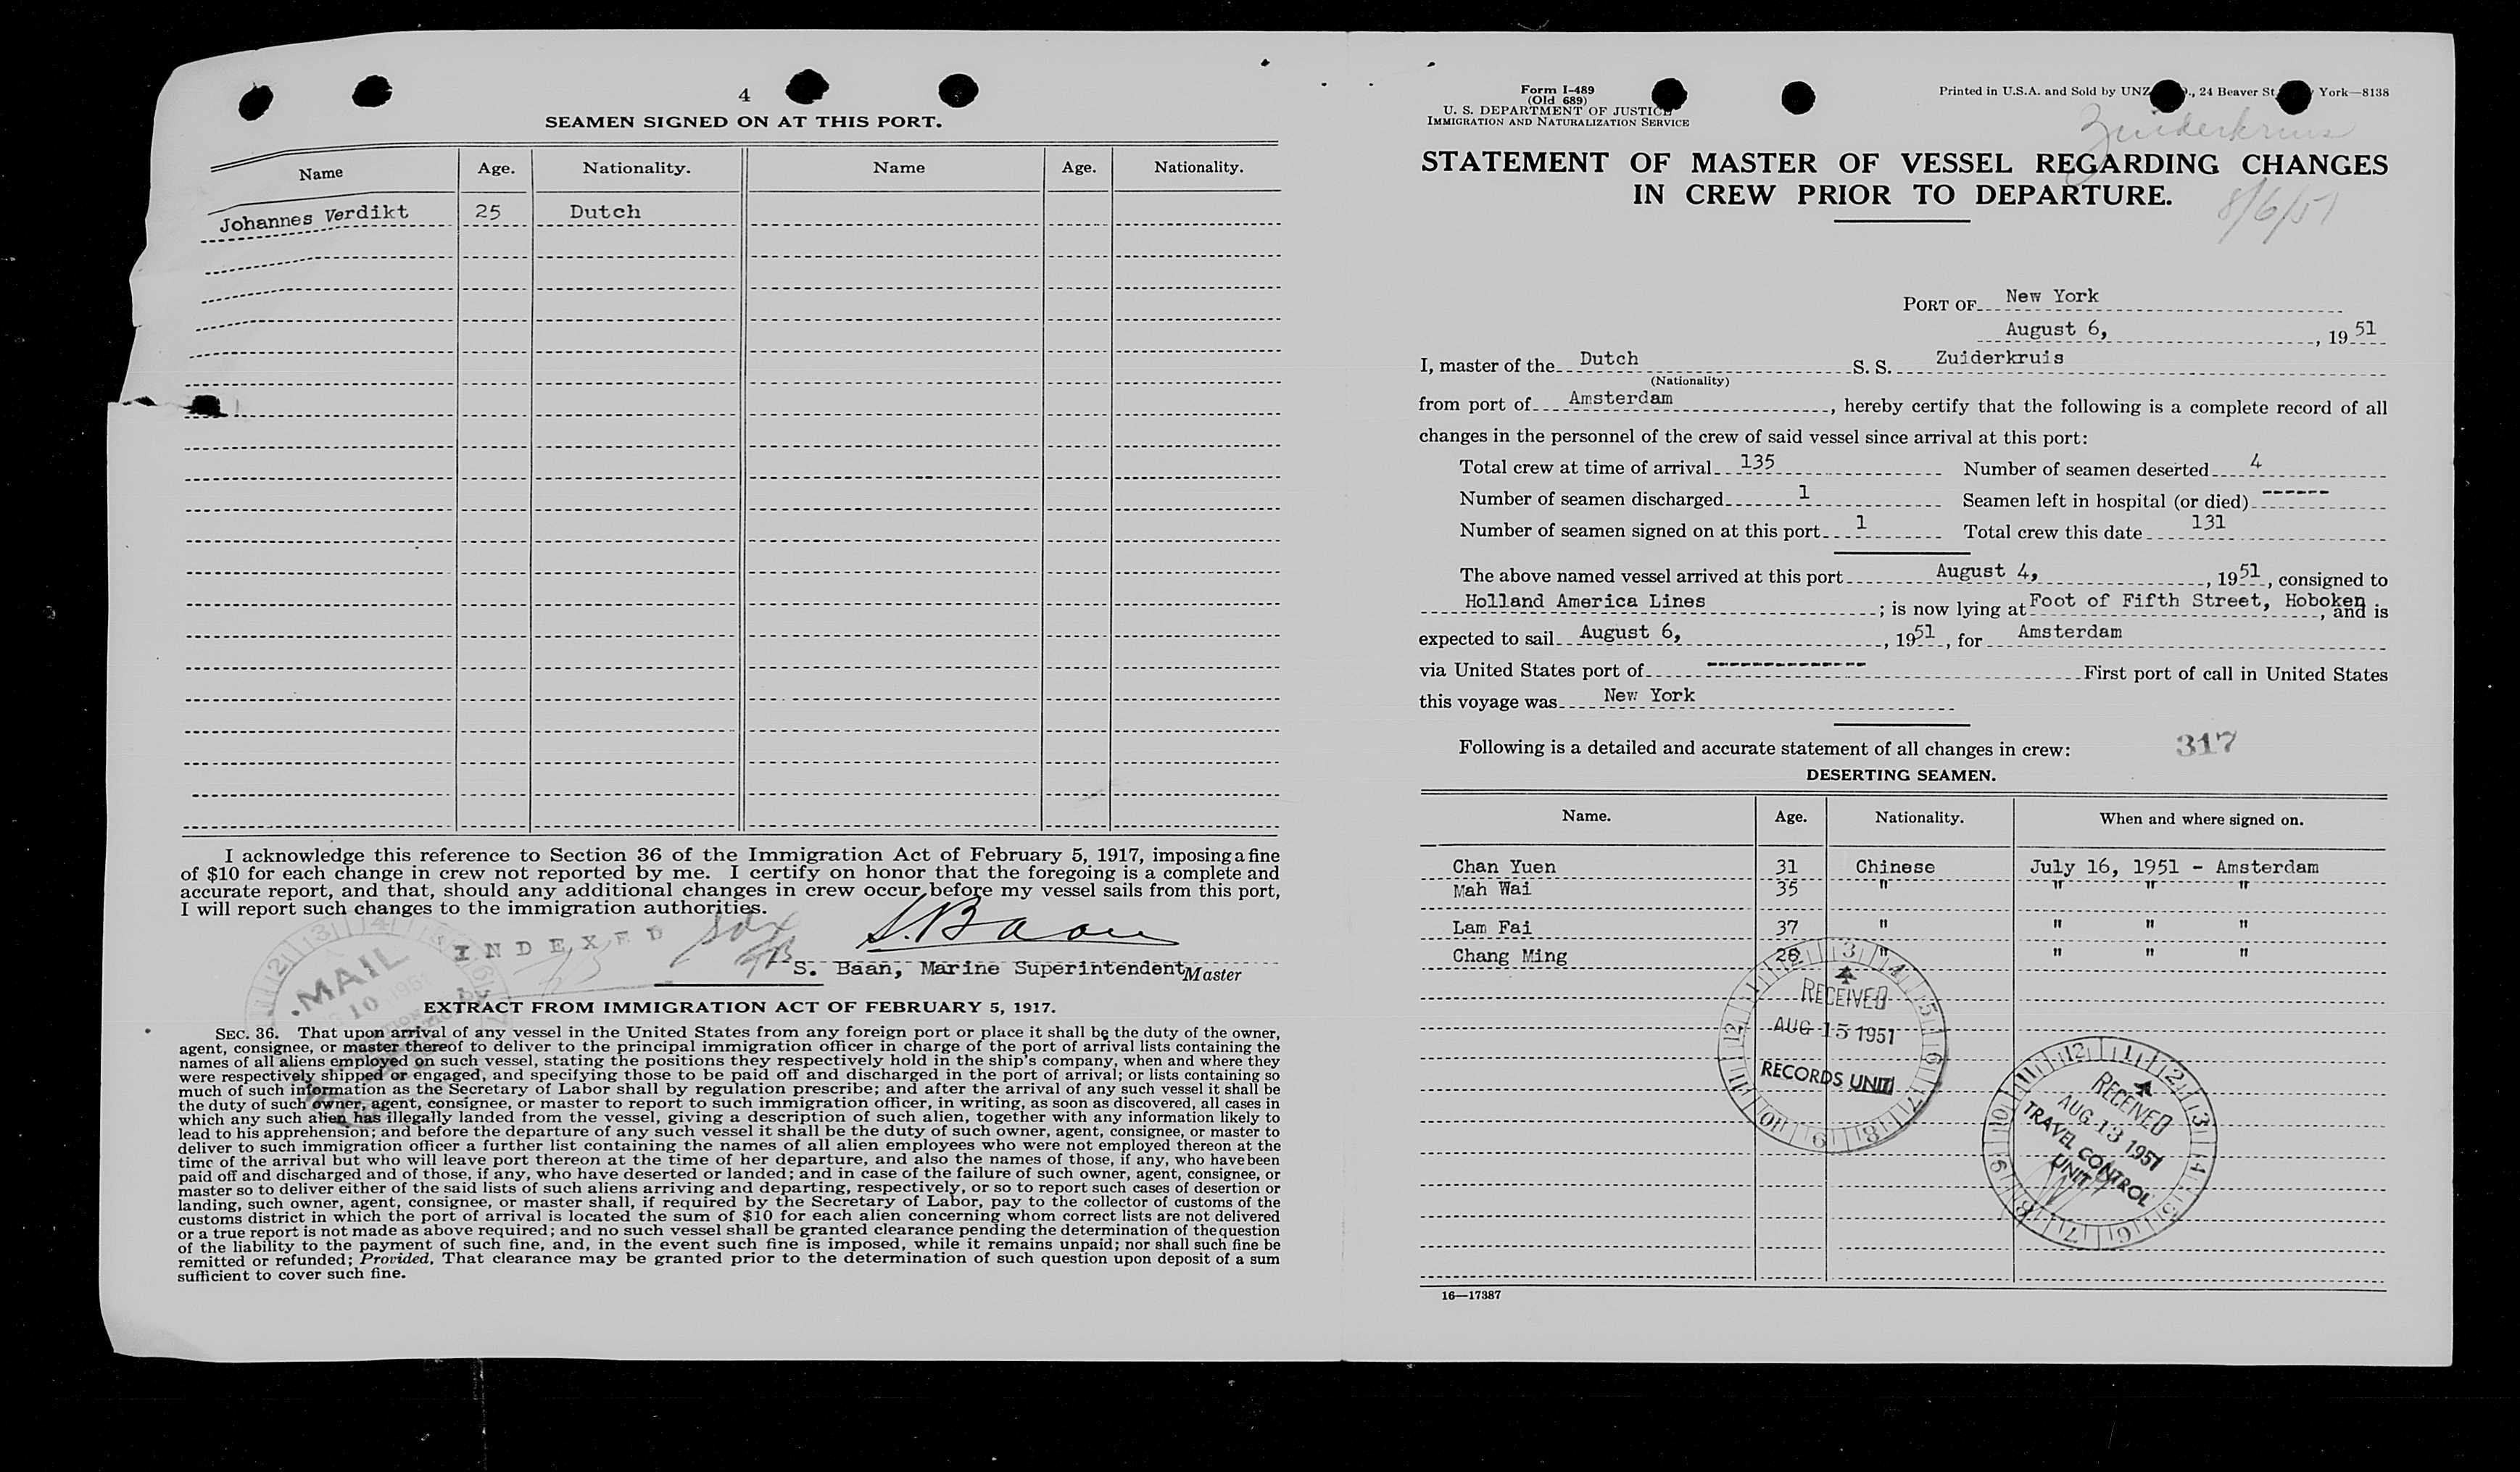 4
SEAMEN SIGNED ON AT THIS PORT.
Name Age. Nationality. Name Age. Nationality.
Johannes Verdikt 25 Dutch
I acknowledge this reference to Section 36 of the Immigration Act of February 5, 1917, imposing a fine
of $10 for each change in crew not reported by me. I certify on honor that the foregoing is a complete and
accurate report, and that, should any additional changes in crew occur before my vessel sails from this port,
I will report such changes to the immigration authorities.
INDEXED
S. Baan
S. Baan, Marine Superintendent Master
MAIL
10 1951
EXTRACT FROM IMMIGRATION ACT OF FEBRUARY 5, 1917.
SEC. 36. That upon arrival of any vessel in the United States from any foreign port or place it shall be the duty of the owner,
agent, consignee, or master thereof to deliver to the principal immigration officer in charge of the port of arrival lists containing the
names of all aliens employed on such vessel, stating the positions they respectively hold in the ship's company, when and where they
were respectively shipped or engaged, and specifying those to be paid off and discharged in the port of arrival; or lists containing so
much of such information as the Secretary of Labor shall by regulation prescribe; and after the arrival of any such vessel it shall be
the duty of such owner, agent, consignee, or master to report to such immigration officer, in writing, as soon as discovered, all cases in
which any such alien has illegally landed from the vessel, giving a description of such alien, together with any information likely to
lead to his apprehension; and before the departure of any such vessel it shall be the duty of such owner, agent, consignee, or master to
deliver to such immigration officer a further list containing the names of all alien employees who were not employed thereon at the
time of the arrival but who will leave port thereon at the time of her departure, and also the names of those, if any, who have been
paid off and discharged and of those, if any, who have deserted or landed; and in case of the failure of such owner, agent, consignee, or
master so to deliver either of the said lists of such aliens arriving and departing, respectively, or so to report such cases of desertion or
landing, such owner, agent, consignee, or master shall, if required by the Secretary of Labor, pay to the collector of customs of the
customs district in which the port of arrival is located the sum of $10 for each alien concerning whom correct lists are not delivered
or a true report is not made as above required; and no such vessel shall be granted clearance pending the determination of the question
of the liability to the payment of such fine, and, in the event such fine is imposed, while it remains unpaid; nor shall such fine be
remitted or refunded; Provided, That clearance may be granted prior to the determination of such question upon deposit of a sum
sufficient to cover such fine.
Form I-489
(Old 689)
U. S. DEPARTMENT OF JUSTICE
IMMIGRATION AND NATURALIZATION SERVICE
Printed in U.S.A. and Sold by UNZ , 24 Beaver St. York—8138
Zuiderkruis
STATEMENT OF MASTER OF VESSEL REGARDING CHANGES
IN CREW PRIOR TO DEPARTURE.
8/6/51
PORT OF New York
August 6, , 1951
I, master of the Dutch S. S. Zuiderkruis
(Nationality)
from port of Amsterdam , hereby certify that the following is a complete record of all
changes in the personnel of the crew of said vessel since arrival at this port:
Total crew at time of arrival 135 Number of seamen deserted 4
Number of seamen discharged 1 Seamen left in hospital (or died) ------
Number of seamen signed on at this port 1 Total crew this date 131
The above named vessel arrived at this port August 4, , 1951, consigned to
Holland America Lines ; is now lying at Foot of Fifth Street, Hoboken, and is
expected to sail August 6, , 1951, for Amsterdam
via United States port of -------------- First port of call in United States
this voyage was New York
Following is a detailed and accurate statement of all changes in crew: 317
DESERTING SEAMEN.
Name. Age. Nationality. When and where signed on.
Chan Yuen 31 Chinese July 16, 1951 - Amsterdam
Mah Wai 35 " " " "
Lam Fai 37 " " " "
Chang Ming 28 " " " "
RECEIVED
AUG 15 1951
RECORDS UNIT
RECEIVED
AUG 13 1951
TRAVEL CONTROL
UNIT
16—17387